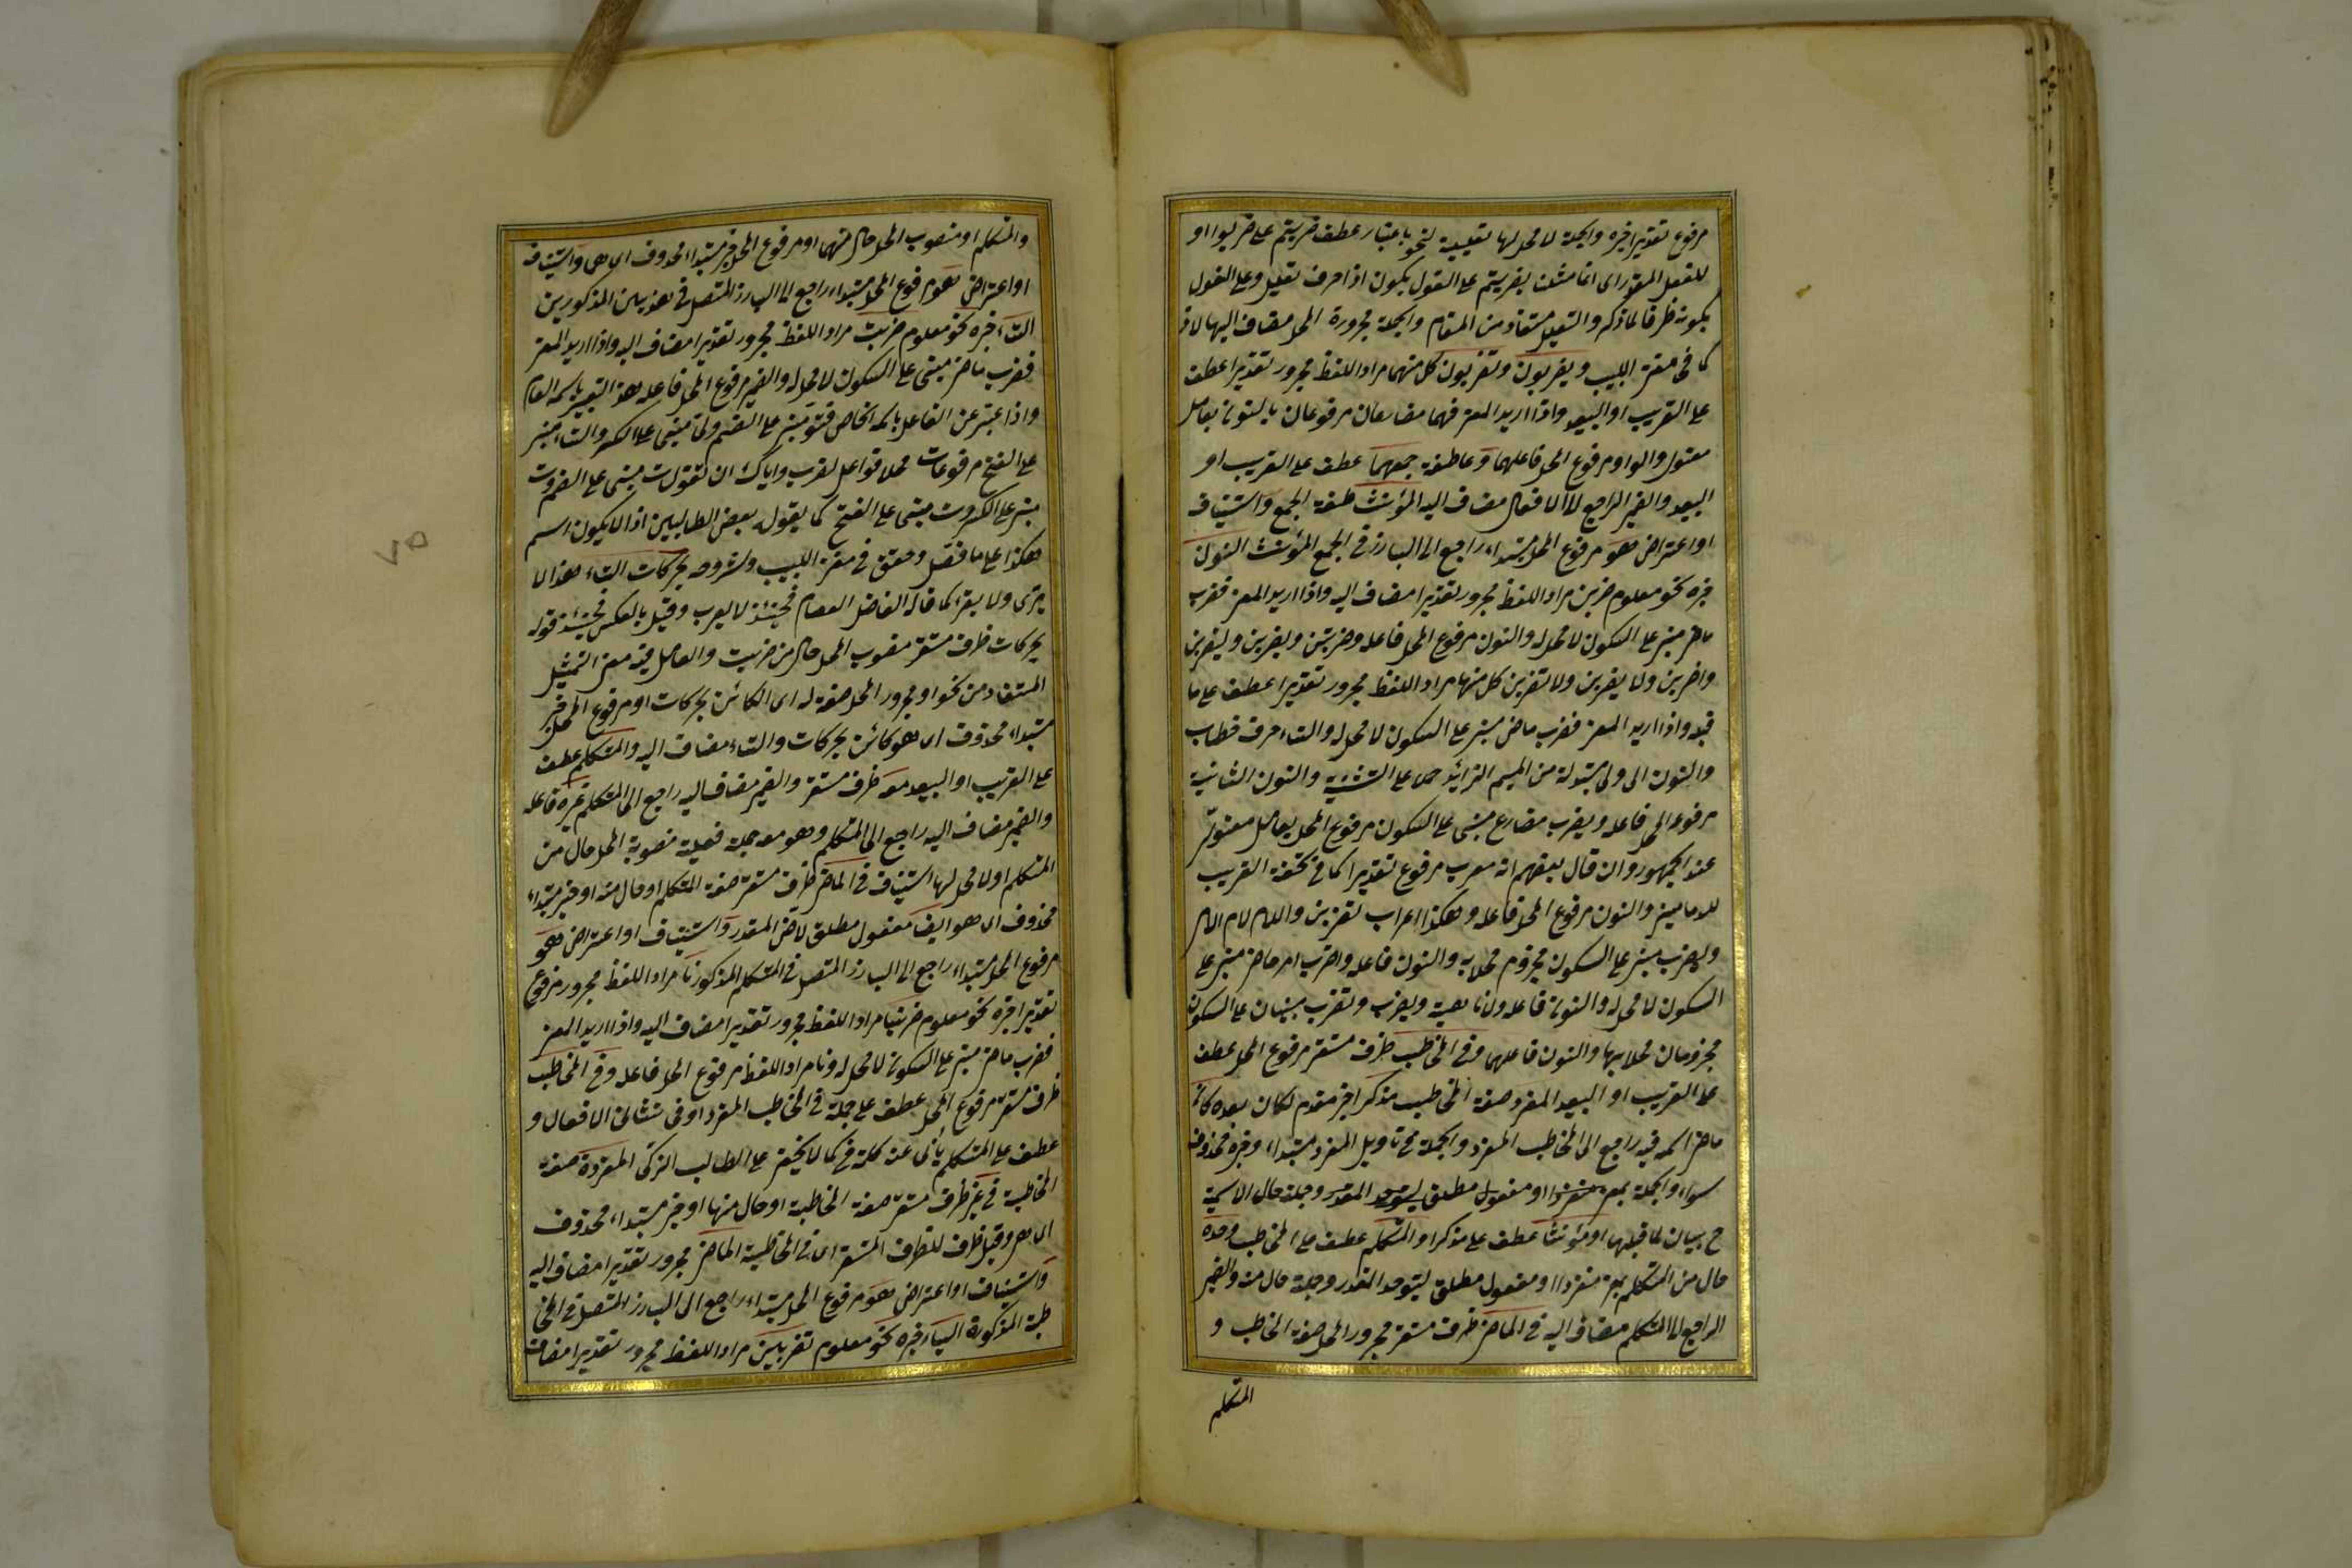 مرفوع تقديرا خبره والجملة لا محل لها تعليلية لنحو باعتبار عطف ضربتم على ضربوا او
للفعل المقدر اى انما مثلت بضربتم على القول بكون اذا حرف تعليل وعلى القول
بكونه ظرفا لما ذكر والتعليل مستفاد من المقام والجملة مجرورة المحل مضاف اليها لاذ
كما فى مغنى اللبيب ويضربون وتضربون كل منهما مراد اللفظ مجرور تقديرا عطف
على القريب او البعيد واذا اريد المعنى فهما مضارعان مرفوعان بالنون بعامل
معنوى والواو مرفوع المحل فاعلهما وعاطفة جمعهما عطف على القريب او
البعيد والضمير الراجع الى الافعال مضاف اليه المؤنث صفة الجمع واستيناف
او اعتراض هو مرفوع المحل مبتداء راجع الى البارز فى الجمع المؤنث النون
خبره نحو معلوم ضربن مراد اللفظ مجرور تقديرا مضاف اليه واذا اريد المعنى فضرب
ماض مبنى على السكون لا محل له والنون مرفوع المحل فاعله وضربتن ويضربن وليضربن
واضربن ولا يضربن ولا تضربن كل منها مراد اللفظ مجرور تقديرا عطف على ما
قبله واذا اريد المعنى فضرب ماض مبنى على السكون لا محل له والتاء حرف خطاب
والنون الاولى مبتدلة من الميم الزائد حملا على التثنية والنون الثانية
مرفوع المحل فاعله ويضرب مضارع مبنى على السكون مرفوع المحل بعامل معنوى
عند الجمهور وان قال بعضهم انه معرب مرفوع تقديرا كما فى تحفة الغريب
للدمامينى والنون مرفوع المحل فاعله وهكذا اعراب تضربن واللام لام الامر
وليضرب مبنى على السكون مجزوم محلا به والنون فاعله واضرب امر حاضر مبنى على
السكون لا محل له والنون فاعله ولا ناهية ويضرب وتضرب مبنيان على السكون
مجزومان محلا بها والنون فاعلهما وفى المخاطب ظرف مستقر مرفوع المحل عطف
على القريب او البعيد المفرد صفة المخاطب مذكرا خبر مقدم لكان بعده كان
ماض اسمه فيه راجع الى المخاطب المفرد والجملة فى تاويل المفرد مبتداء وخبره محذوف
سواء والجملة بمعنى منفردا او مفعول مطلق ليتوحد المقدر وجملة حال الاسمية
ح بيان لما قبلها او مؤنثا عطف على مذكرا والمتكلم عطف على المخاطب وحده
حال من المتكلم بمعنى منفردا او مفعول مطلق ليتوحد المقدر وجملة حال منه والضمير
الراجع الى المتكلم مضاف اليه فى الماضى ظرف مستقر مجرور المحل صفة المخاطب و
المتكلم
والمتكلم او منصوب المحل حال منهما او مرفوع المحل خبر مبتداء محذوف اى هى واستيناف
او اعتراض هو مرفوع المحل مبتداء راجع الى البارز المتصل فى هذين المذكورين
التاء خبره نحو معلوم ضربت مراد اللفظ مجرور تقديرا مضاف اليه واذا اريد المعنى
فضرب ماض مبنى على السكون لا محل له والضمير مرفوع المحل فاعله هذا التعبير باسمه العام
واذا عبر عن الفاعل باسمه الخاص فتو مبنى على الضم وتى مبنى على الكسر والتاء مبنى
على الفتح مرفوعات محلا فواعل لضرب واياك ان تقول ت مبنى على الضم وت
مبنى على الكسر وت مبنى على الفتح كما يقول بعض الطالبين اذ لا يكون اسم
هكذا على ما فصل وحقق فى مغنى اللبيب وشروحه بحركات التاء هذا لا
يرى ولا يقرء كما قاله الفاضل العصام فحينئذ لا يعرب وقيل بالعكس فحينئذ قوله
بحركات ظرف مستقر منصوب المحل حال من ضربت والعامل فيه معنى التمثيل
المستفاد من نحو او مجرور المحل صفة له اى الكائن بحركات او مرفوع المحل خبر
مبتداء محذوف اى هو كائن بحركات والتاء مضاف اليه والمتكلم عطف
على القريب او البعيد معه ظرف مستقر والضمير مضاف اليه راجع الى المتكلم غيره فاعله
والضمير مضاف اليه راجع الى المتكلم وهو معه جملة فعلية منصوبة المحل حال من
المتكلم او لا محل لها استيناف فى الماضى ظرف مستقر صفة المتكلم او حال منه او خبر مبتداء
محذوف اى هو ايضا مفعول مطلق لآض المقدر واستيناف او اعتراض هو
مرفوع المحل مبتداء راجع الى البارز المتصل فى المتكلم المذكور نا مراد اللفظ مجرور مرفوع
تقديرا خبره نحو معلوم ضربنا مراد اللفظ مجرور تقديرا مضاف اليه واذا اريد المعنى
فضرب ماض مبنى على السكون لا محل له ونا مراد اللفظ مرفوع المحل فاعله وفى المخاطبة
ظرف مستقر مرفوع المحل عطف على جملة فى المخاطب المفرد او فى تثانى الافعال و
عطف على المتكلم يأبى عنه كلمة فى كما لا يخفى على الطالب الزكى المفردة صفة
المخاطبة فى غير ظرف مستقر صفة المخاطبة او حال منها او خبر مبتداء محذوف
اى هى وقيل ظرف للظرف المستقر اى فى المخاطبة الماضى مجرور تقديرا مضاف اليه
واستيناف او اعتراض هو مرفوع المحل مبتداء راجع الى البارز المتصل فى المخا
طبة المذكورة الياء خبره نحو معلوم تضربين مراد اللفظ مجرور تقديرا مضاف